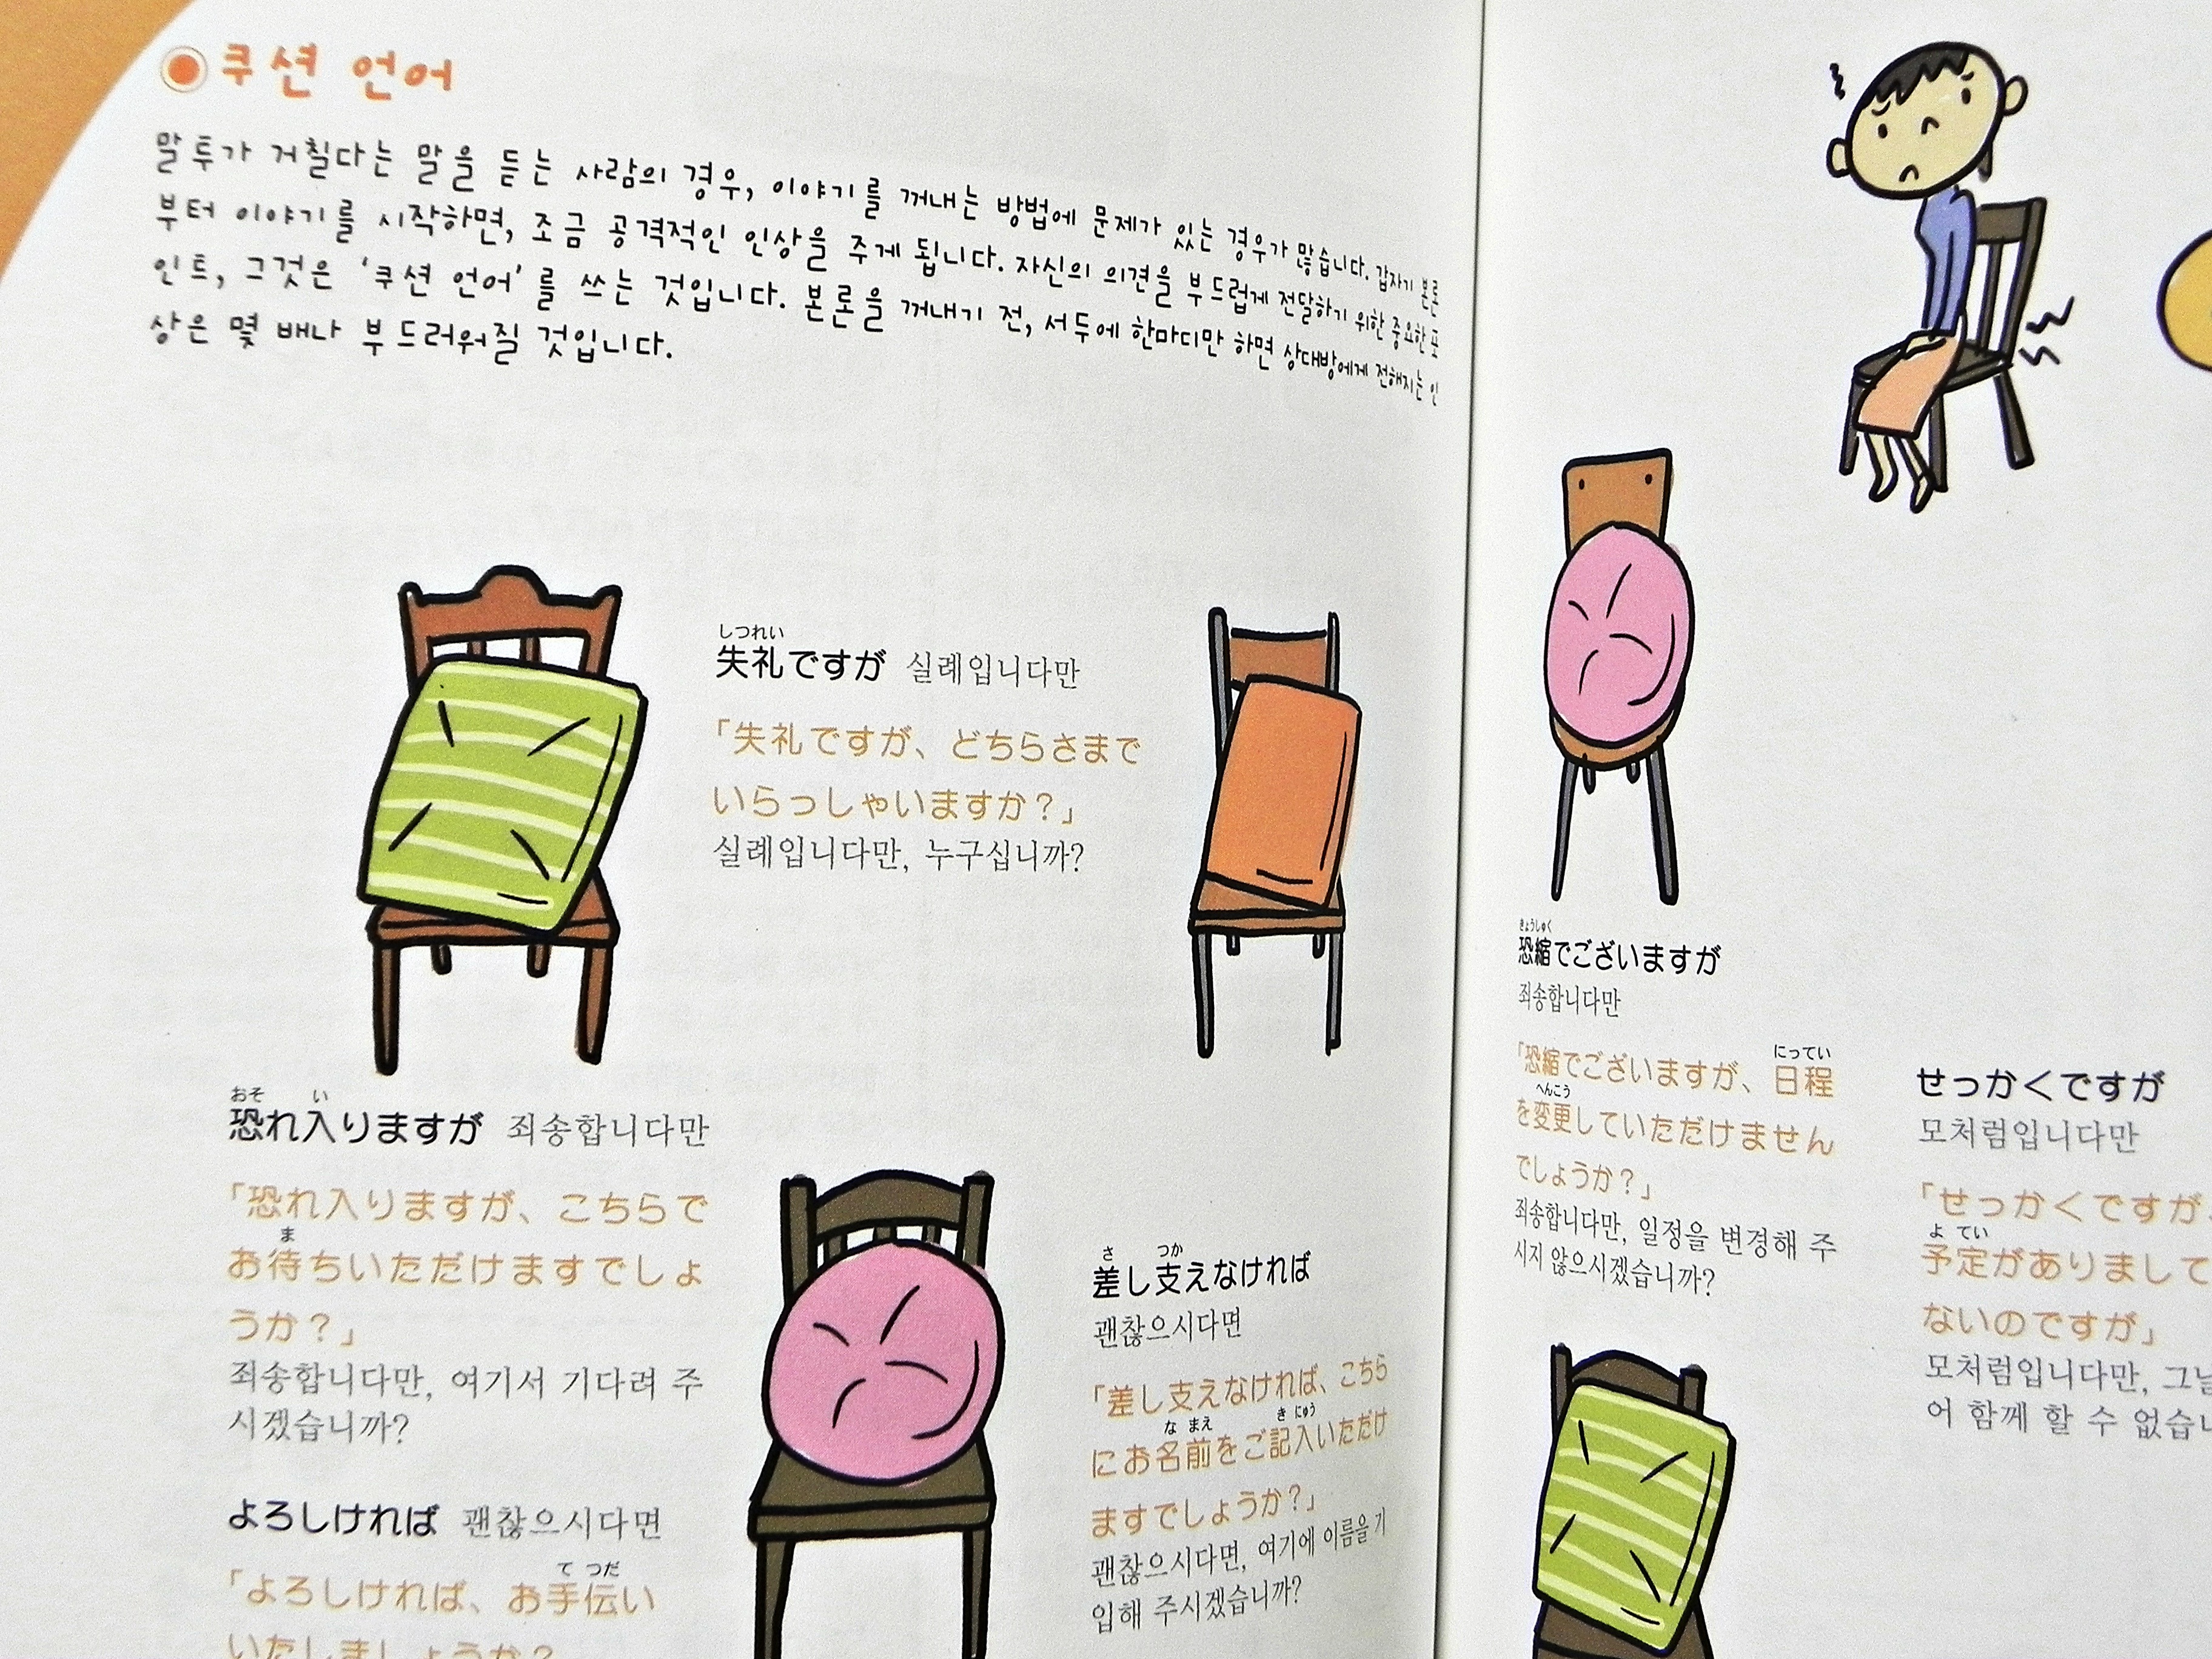 쿠션 언어
말투가 거칠다는 말을 듣는 사람의 경우, 이야기를 꺼내는 방법에 문제가 있는 경우가 많습니다. 갑자기 본론
부터 이야기를 시작하면, 조금 공격적인 인상을 주게 됩니다. 자신의 의견을 부드럽게 전달하기 위한 중요한 포
인트, 그것은 '쿠션 언어'를 쓰는 것입니다. 본론을 꺼내기 전, 서두에 한마디만 하면 상대방에게 전해지는 인
상은 몇 배나 부드러워질 것입니다.
しつれい
失礼ですが 실례입니다만
「失礼ですが、どちらさまで
いらっしゃいますか？」
실례입니다만, 누구십니까?
おそ い
恐れ入りますが 죄송합니다만
「恐れ入りますが、こちらで
ま
お待ちいただけますでしょ
うか？」
죄송합니다만, 여기서 기다려 주
시겠습니까?
よろしければ 괜찮으시다면
て つだ
「よろしければ、お手伝い
いたしましょうか？
さ つか
差し支えなければ
괜찮으시다면
「差し支えなければ、こちら
な まえ き にゅう
にお名前をご記入いただけ
ますでしょうか？」
괜찮으시다면, 여기에 이름을 기
입해 주시겠습니까?
きょうしゅく
恐縮でございますが
죄송합니다만
にってい
「恐縮でございますが、日程
へんこう
を変更していただけません
でしょうか？」
죄송합니다만, 일정을 변경해 주
시지 않으시겠습니까?
せっかくですが
모처럼입니다만
「せっかくですが、
よ てい
予定がありまして
ないのですが」
모처럼입니다만, 그날
어 함께 할 수 없습니